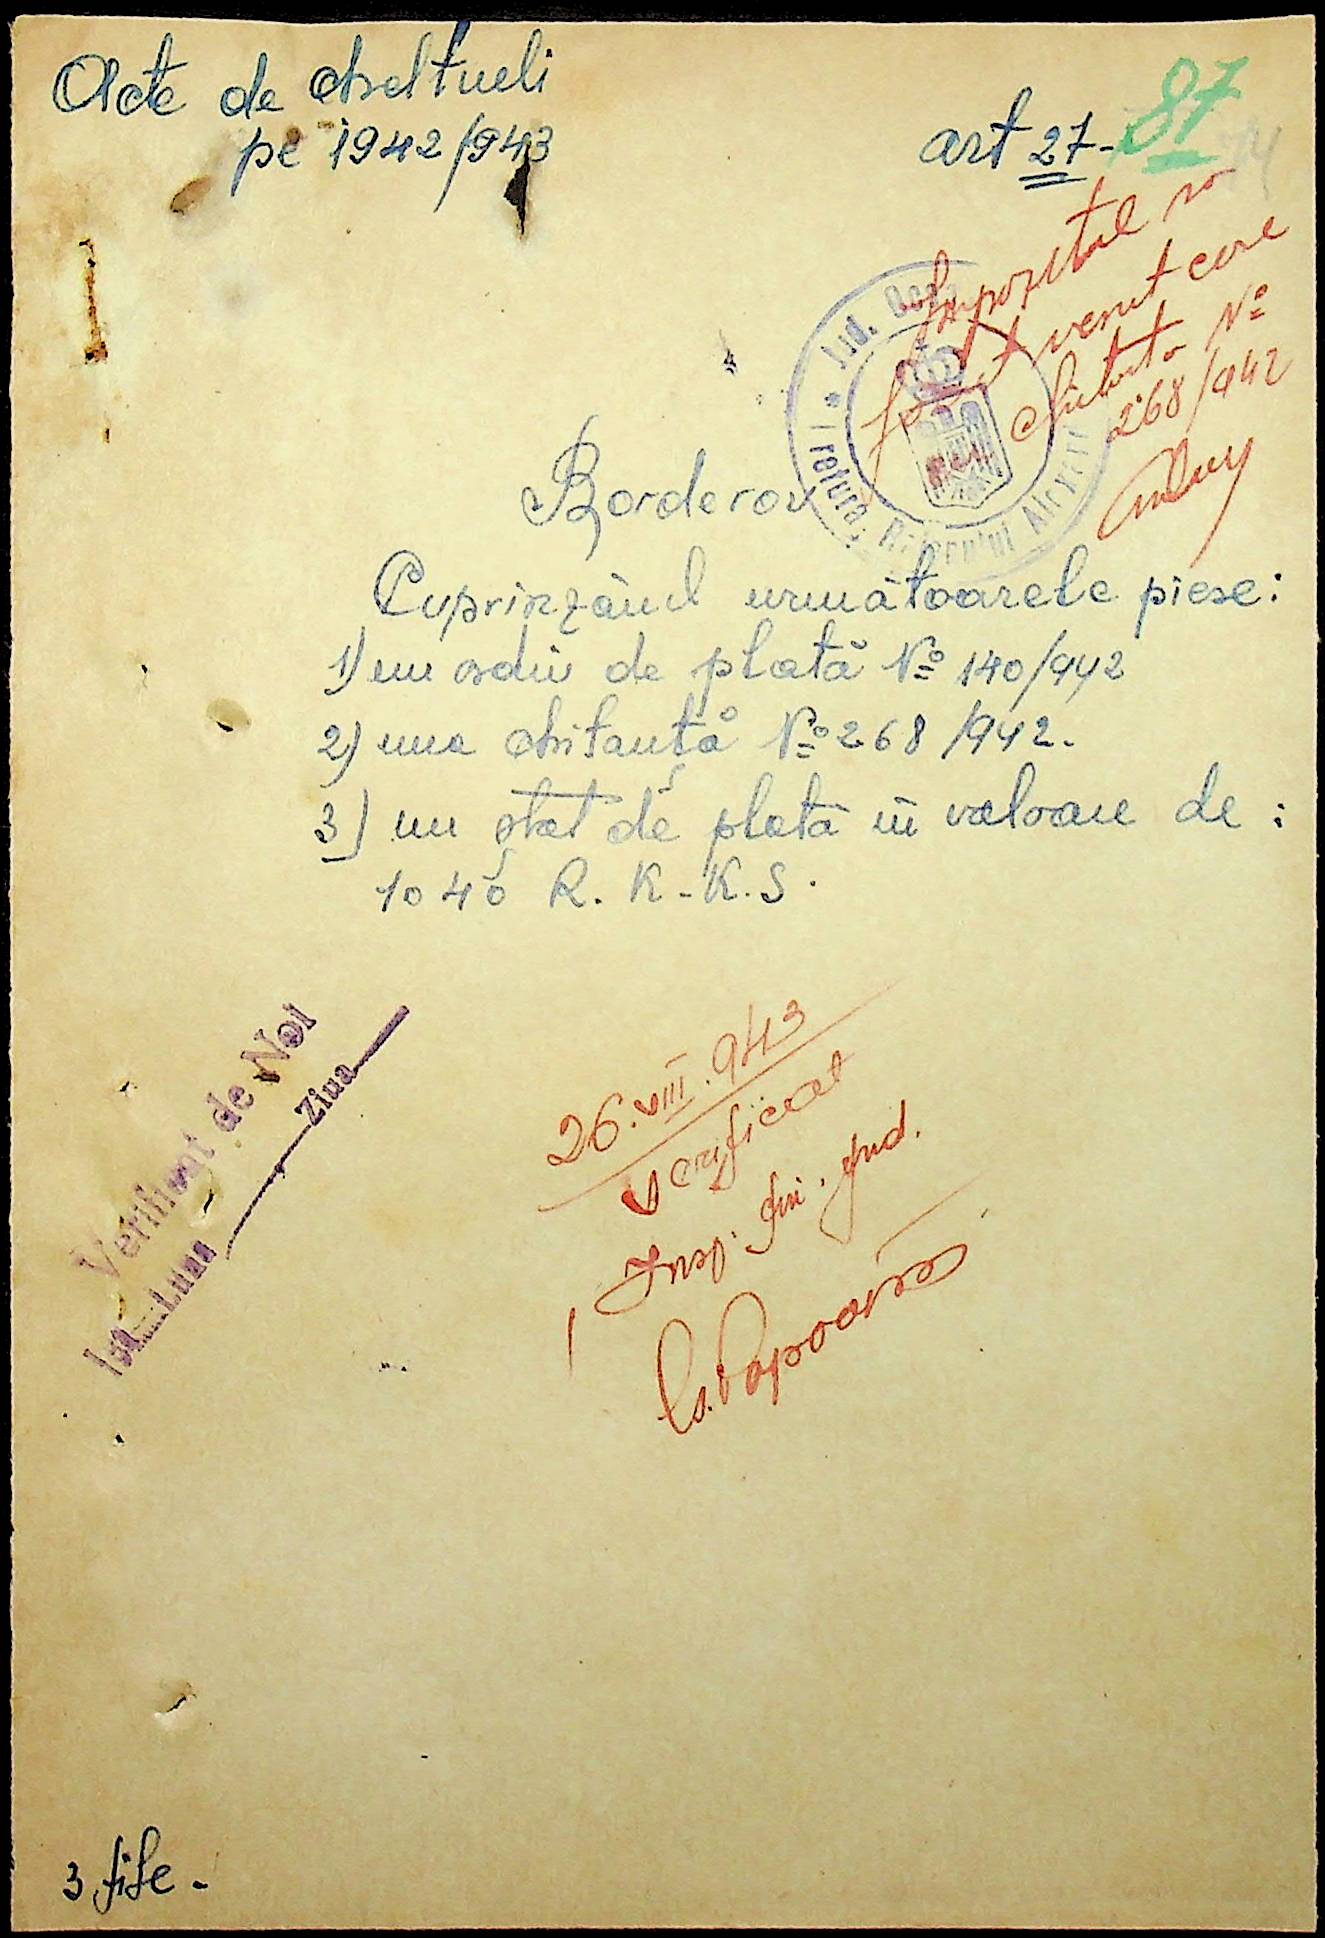 Acte de cheltueli
pe 1942/943
art 27-
87
74
Impozitul s'a
vărsat cu
chitanta No
268/942
Jud.
Borderou
Cuprinzând următoarele piese:
1) un ordin de plată No 140/942
2) una chitanță No 268/942.
3) un ștat de plată în valoare de:
1040 R.K.K.S.
Verificat de Noi
Luna Ziua
26.VIII.943
Verificat
Insp. fin. jud.
3 file.